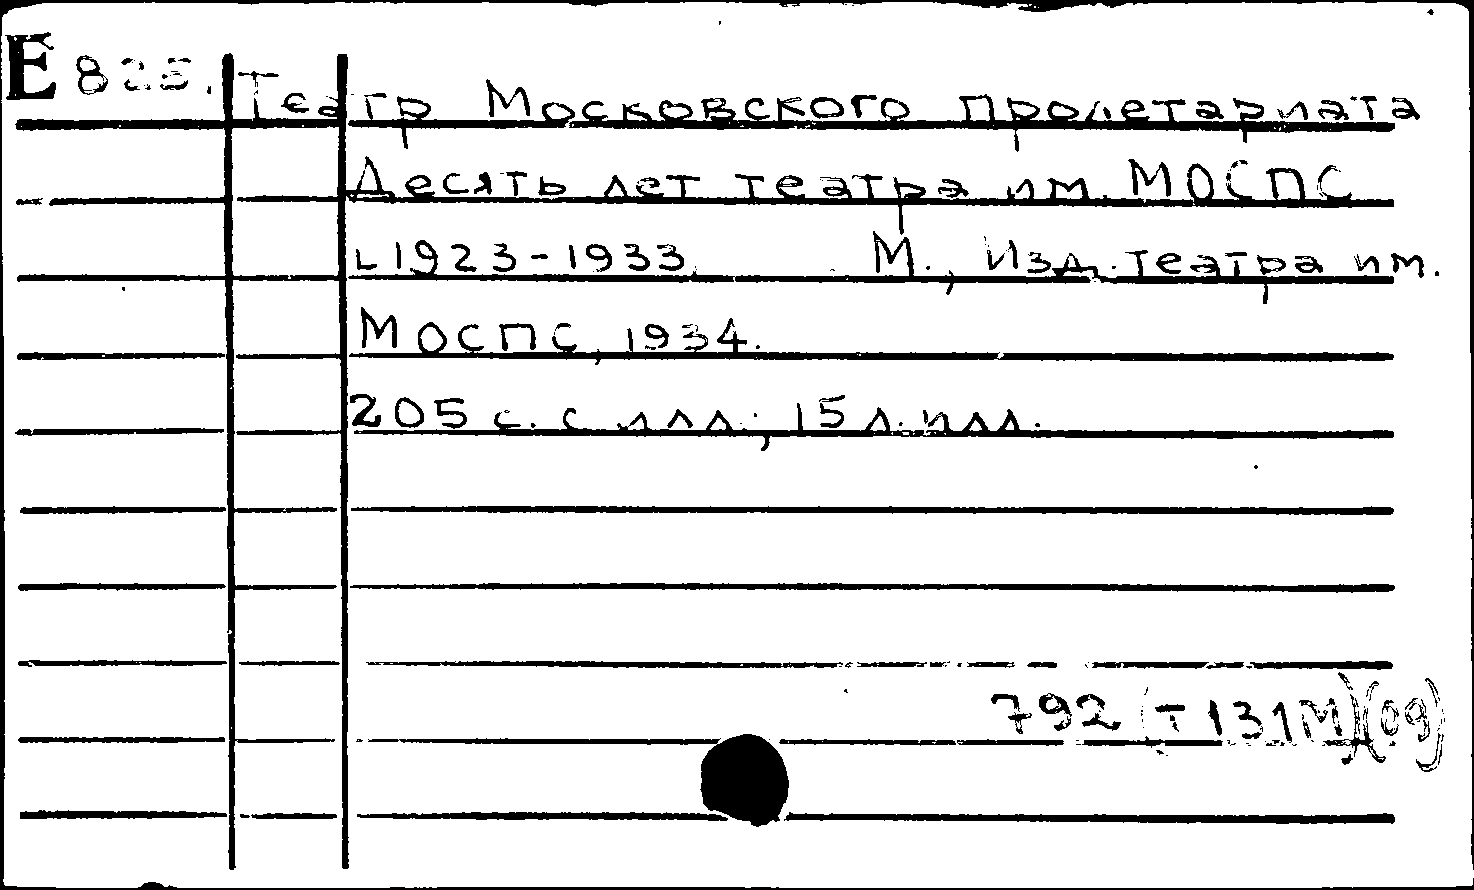 Е 825. Театр Московского пролетариата
Десять лет театра им. МОСПС
1923-1933. М., Изд. театра им.
МОСПС, 1934.
205 с. с илл.; 15 л. илл.
792 (Т 131М)(09)